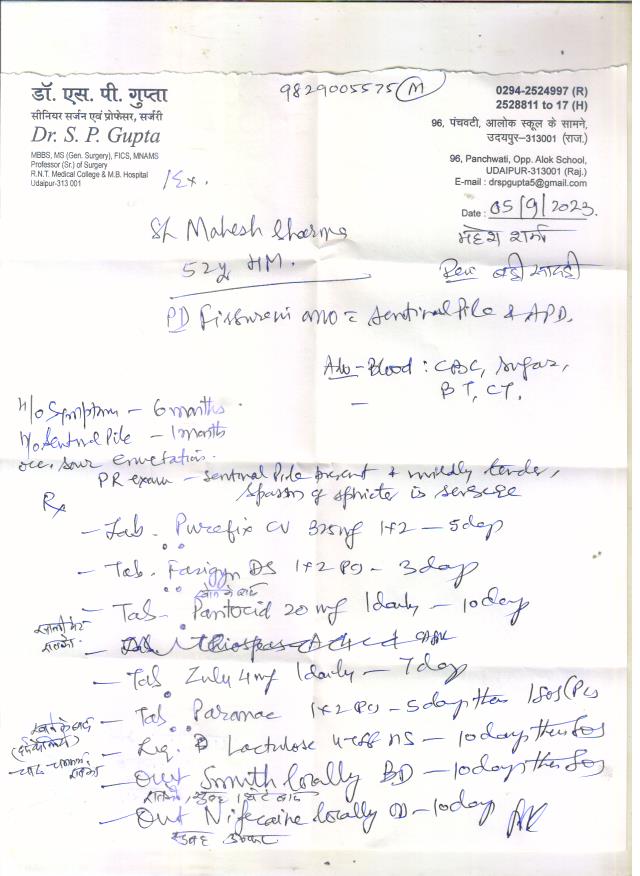 9829005575 (M)
डॉ. एस. पी. गुप्ता
सीनियर सर्जन एवं प्रोफेसर, सर्जरी
Dr. S. P. Gupta
MBBS, MS (Gen. Surgery), FICS, MNAMS
Professor (Sr.) of Surgery
R.N.T. Medical College & M.B. Hospital
Udaipur-313 001
0294-2524997 (R)
2528811 to 17 (H)
96, पंचवटी, आलोक स्कूल के सामने,
उदयपुर-313001 (राज.)
96, Panchwati, Opp. Alok School,
UDAIPUR-313001 (Raj.)
E-mail : drspgupta5@gmail.com
Date : 05/9/2023.
Sh Mahesh Sharma
महेश शर्मा
52y HM.
PD Fissure in ano = sentinal Pile & APD.
Adv - Blood : CBC, sugar,
BT, CT.
H/o Symptom - 6 months
H/o Sentinal Pile - 1 month
PR exam - sentinal Pile present & mildly tender,
spasm of sphincter is
Rx
- Tab. CV 325mg 1+2 - 5day
- Tab. Fasigyn DS 1+2 PC - 3day
खाने के बाद
- Tab Pantocid 20 mg 1daily - 10day
- Tab 4mg 1daily - 7day
- Tab Paramac 1+2 PC - 5day then 1 SOS (PC)
खाने के बाद
- Liq. Lactulose HS - 10days then SOS
- Oint Smuth locally BD - 10days then SOS
- Oint Nifecaine locally OD - 10day